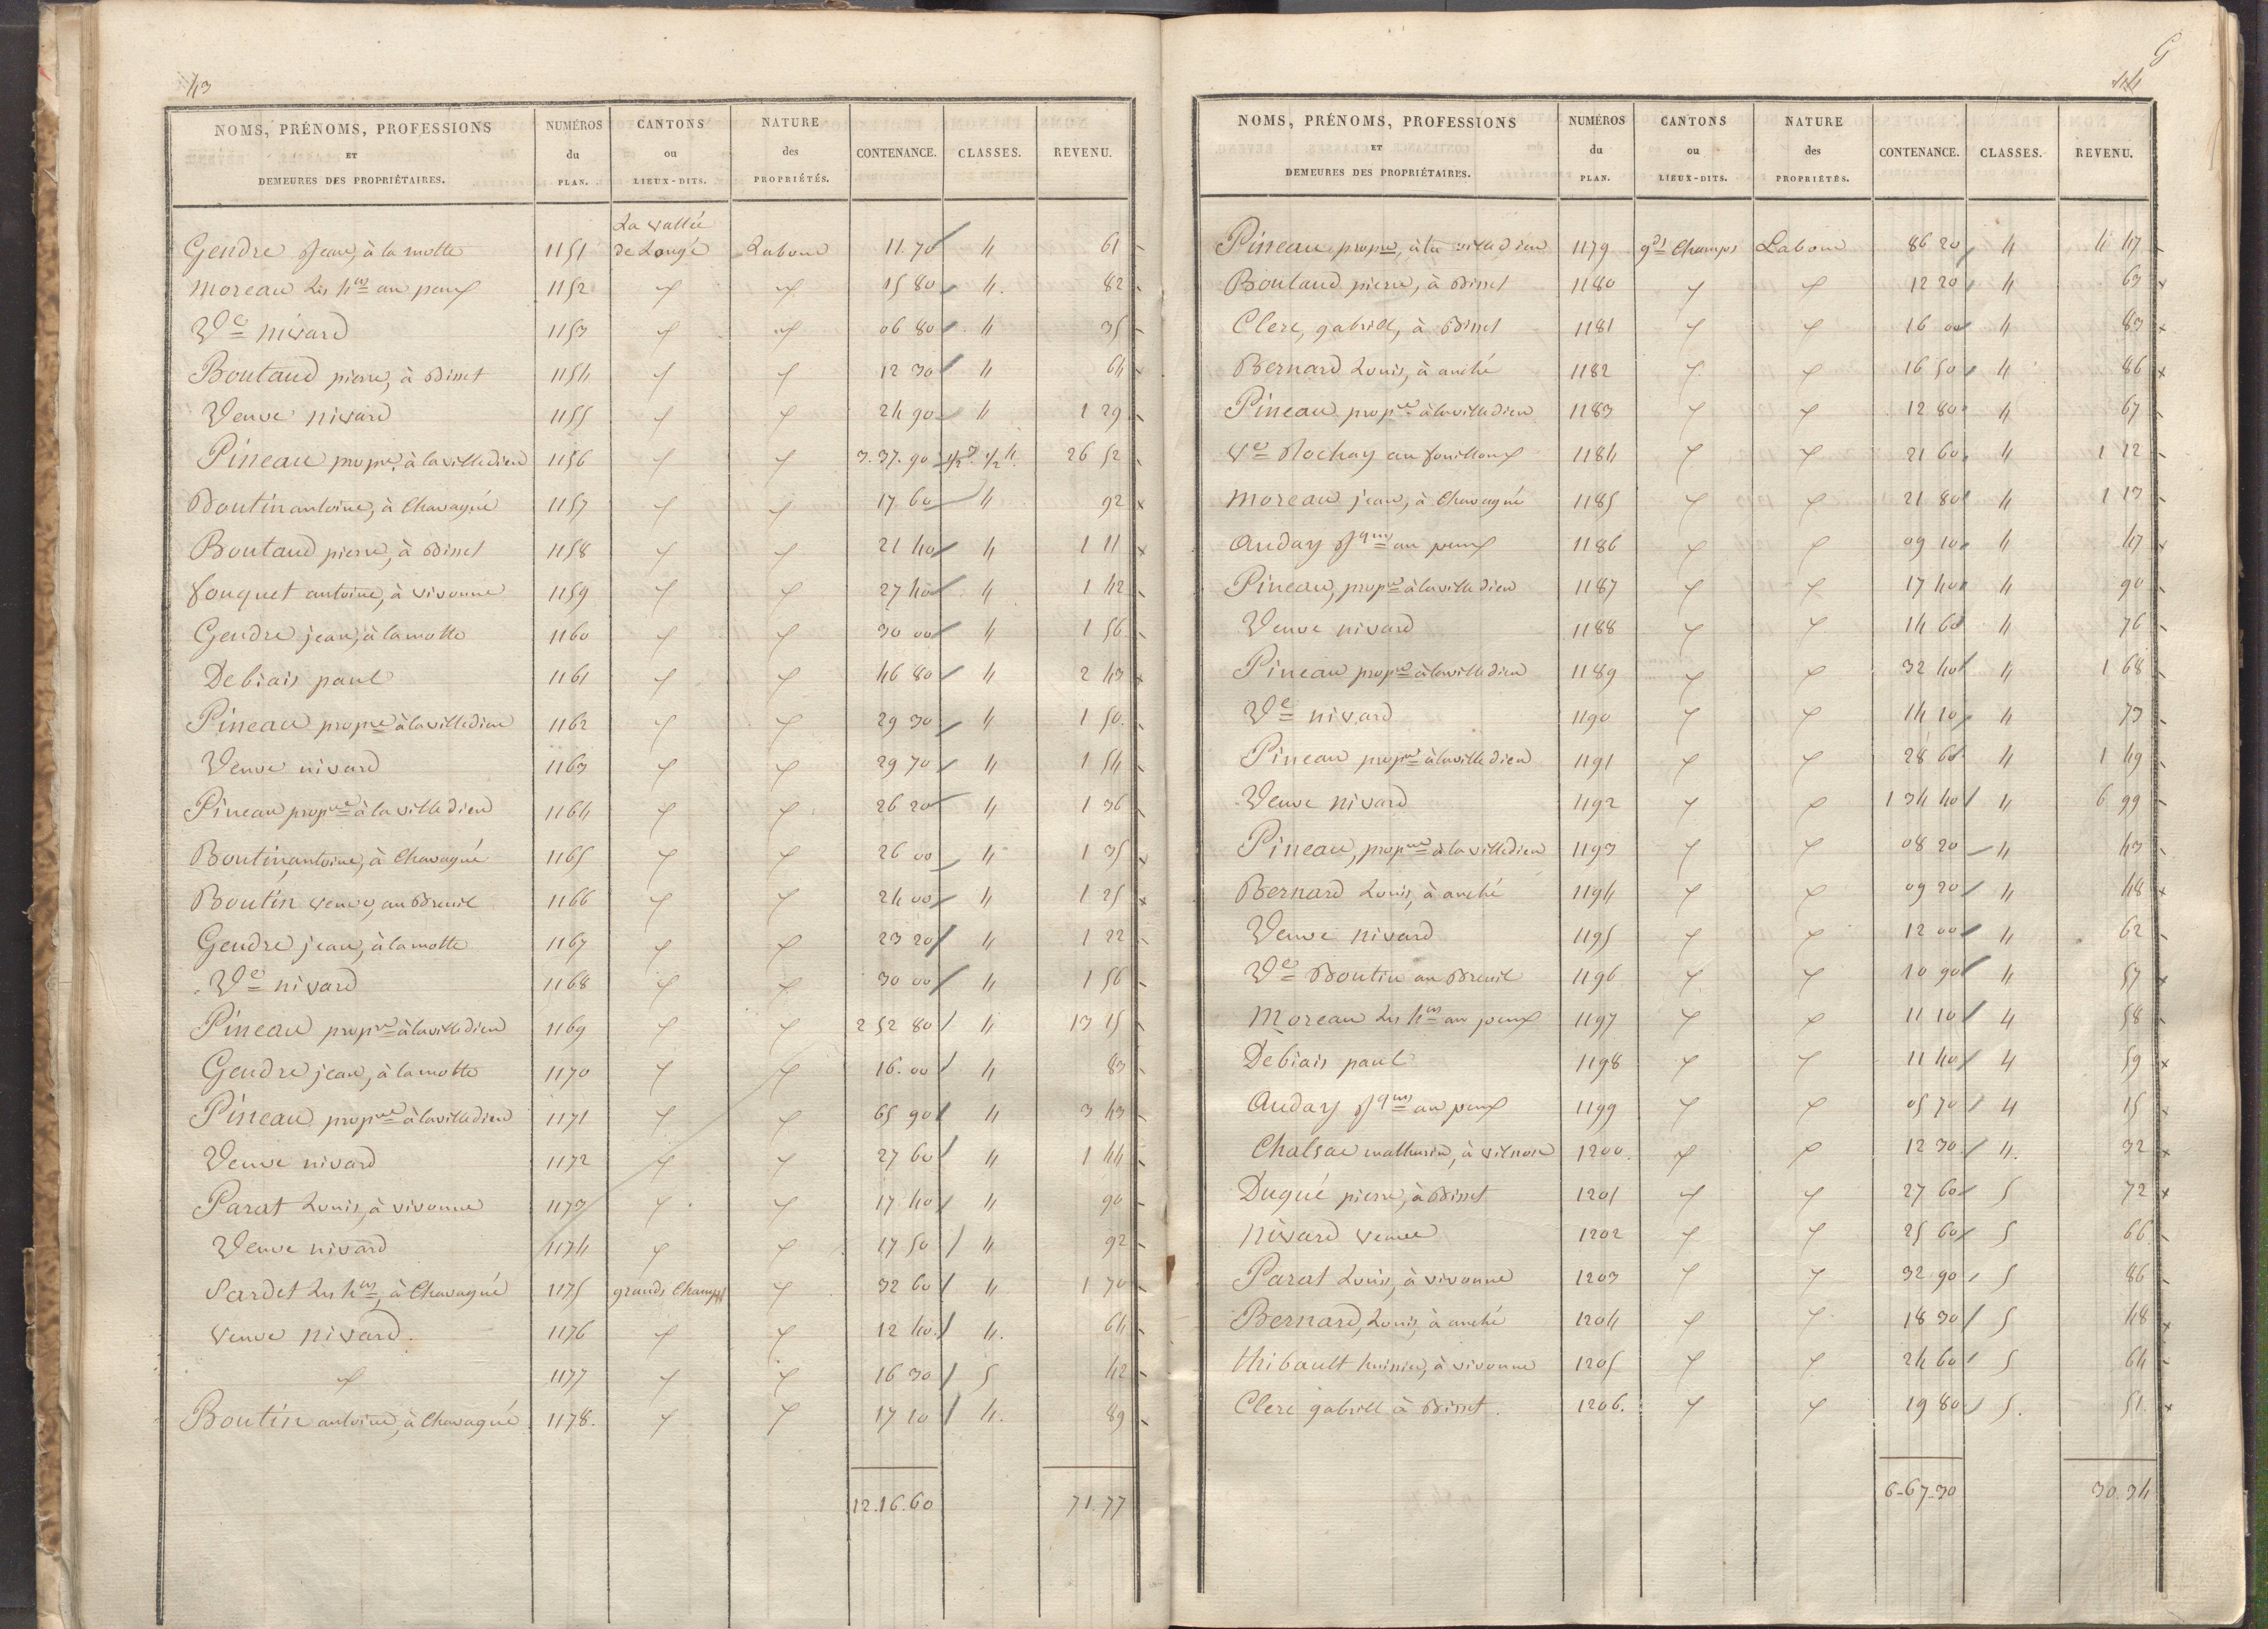 43
NOMS, PRÉNOMS, PROFESSIONS ET DEMEURES DES PROPRIÉTAIRES. NUMÉROS du PLAN. CANTONS ou LIEUX-DITS. NATURE des PROPRIÉTÉS. CONTENANCE. CLASSES. REVENU.
La vallée
Gendre Jean, à la motte 1151 de Longé Labour 11.70 4 61
Moreau les hers au peux 1152 " " 15 80 4. 82
Ve nivard 1153 " " 06 80 4 35
Boutaud pierre, à Bissct 1154 " " 12 30 4 64
Veuve nivard 1155 " " 24 90 4 1 29
Pineau propre, à la villedieu 1156 " " 3.37.90 1/2 3. 1/2 4. 26 52
Boutin antoine, à Chavagné 1157 " " 17 60 4 92
Boutaud pierre, à Bissct 1158 " " 21 40 4 1 11
fouquet antoine, à vivonne 1159 " " 27 40 4 1 42
Gendre jean, à la motte 1160 " " 30 00 4 1 56
Debiais paul 1161 " " 46 80 4 2 43
Pineau propre à la villedieu 1162 " " 29 30 4 1 50.
Veuve nivard 1163 " " 29 70 4 1 54
Pineau propre à la villedieu 1164 " " 26 20 4 1 36
Boutin antoine, à Chavagné 1165 " " 26 00 4 1 35
Boutin veuve, au Breuil 1166 " " 24 00 4 1 25
Gendre jean, à la motte 1167 " " 23 20 4 1 22
Ve nivard 1168 " " 30 00 4 1 56
Pineau propre à la villedieu 1169 " " 2 52 80 4 13 15
Gendre jean, à la motte 1170 " " 16.00 4 83
Pineau propre à la villedieu 1171 " " 65 90 4 3 43
Veuve nivard 1172 " " 27 60 4 1 44
Parat Louis, à vivonne 1173 " " 17 40 4 90
Veuve nivard 1174 " " 17 50 4 92
Sardet les hers, à Chavagné 1175 grands Champs " 32 60 4 1 70
veuve nivard. 1176 " " 12 40. 4. 64
" 1177 " " 16 30 5 42
Boutin antoine, à Chavagné 1178. " " 17 10 4. 89
12.16.60 71.77
G
44
NOMS, PRÉNOMS, PROFESSIONS ET DEMEURES DES PROPRIÉTAIRES. NUMÉROS du PLAN. CANTONS ou LIEUX-DITS. NATURE des PROPRIÉTÉS. CONTENANCE. CLASSES. REVENU.
Pineau propre, à la villedieu 1179 gds Champs Labour 86 20 4 4 47
Boutaud pierre, à Bissct 1180 " " 12 20 4 63
Clerc, gabriel, à Bissct 1181 " " 16 00 4 83
Bernard Louis, à anché 1182 " " 16 50 4 86
Pineau propre à la villedieu 1183 " " 12 80 4 67
Ve Rochay au fouilloux 1184 " " 21 60 4 1 12
Moreau jean, à Chavagné 1185 " " 21 80 4 1 13
Auday Jques au peux 1186 " " 09 10 4 47
Pineau, propre à la villedieu 1187 " " 17 40 4 90
Veuve nivard 1188 " " 14 60 4 76
Pineau propre à la villedieu 1189 " " 32 40 4 1 68
Ve nivard 1190 " " 14 10 4 73
Pineau propre à la villedieu 1191 " " 28 60 4 1 49
Veuve nivard 1192 " " 1 34 40 4 6 99
Pineau, propre à la villedieu 1193 " " 08 20 4 43
Bernard Louis, à anché 1194 " " 09 20 4 48
Veuve nivard 1195 " " 12 00 4 62
Ve Boutin au Breuil 1196 " " 10 90 4 57
Moreau les hers au peux 1197 " " 11 10 4 58
Debiais paul 1198 " " 11 40 4 59
Auday Jques au peux 1199 " " 05 70 4 15
Chalsac mathurin, à vilnoue 1200. " " 12 30 4. 32
Dugué pierre, à Bissct 1201 " " 27 60 5 72
Nivard veuve 1202 " " 25 60 5 66
Parat Louis, à vivonne 1203 " " 32 90 5 86
Bernard, Louis, à anché 1204 " " 18 30 5 48
thibault huissier, à vivonne 1205 " " 24 60 5 64
Clerc gabriel à Bissct. 1206. " " 19 80 5. 51.
6.67.30 30.34